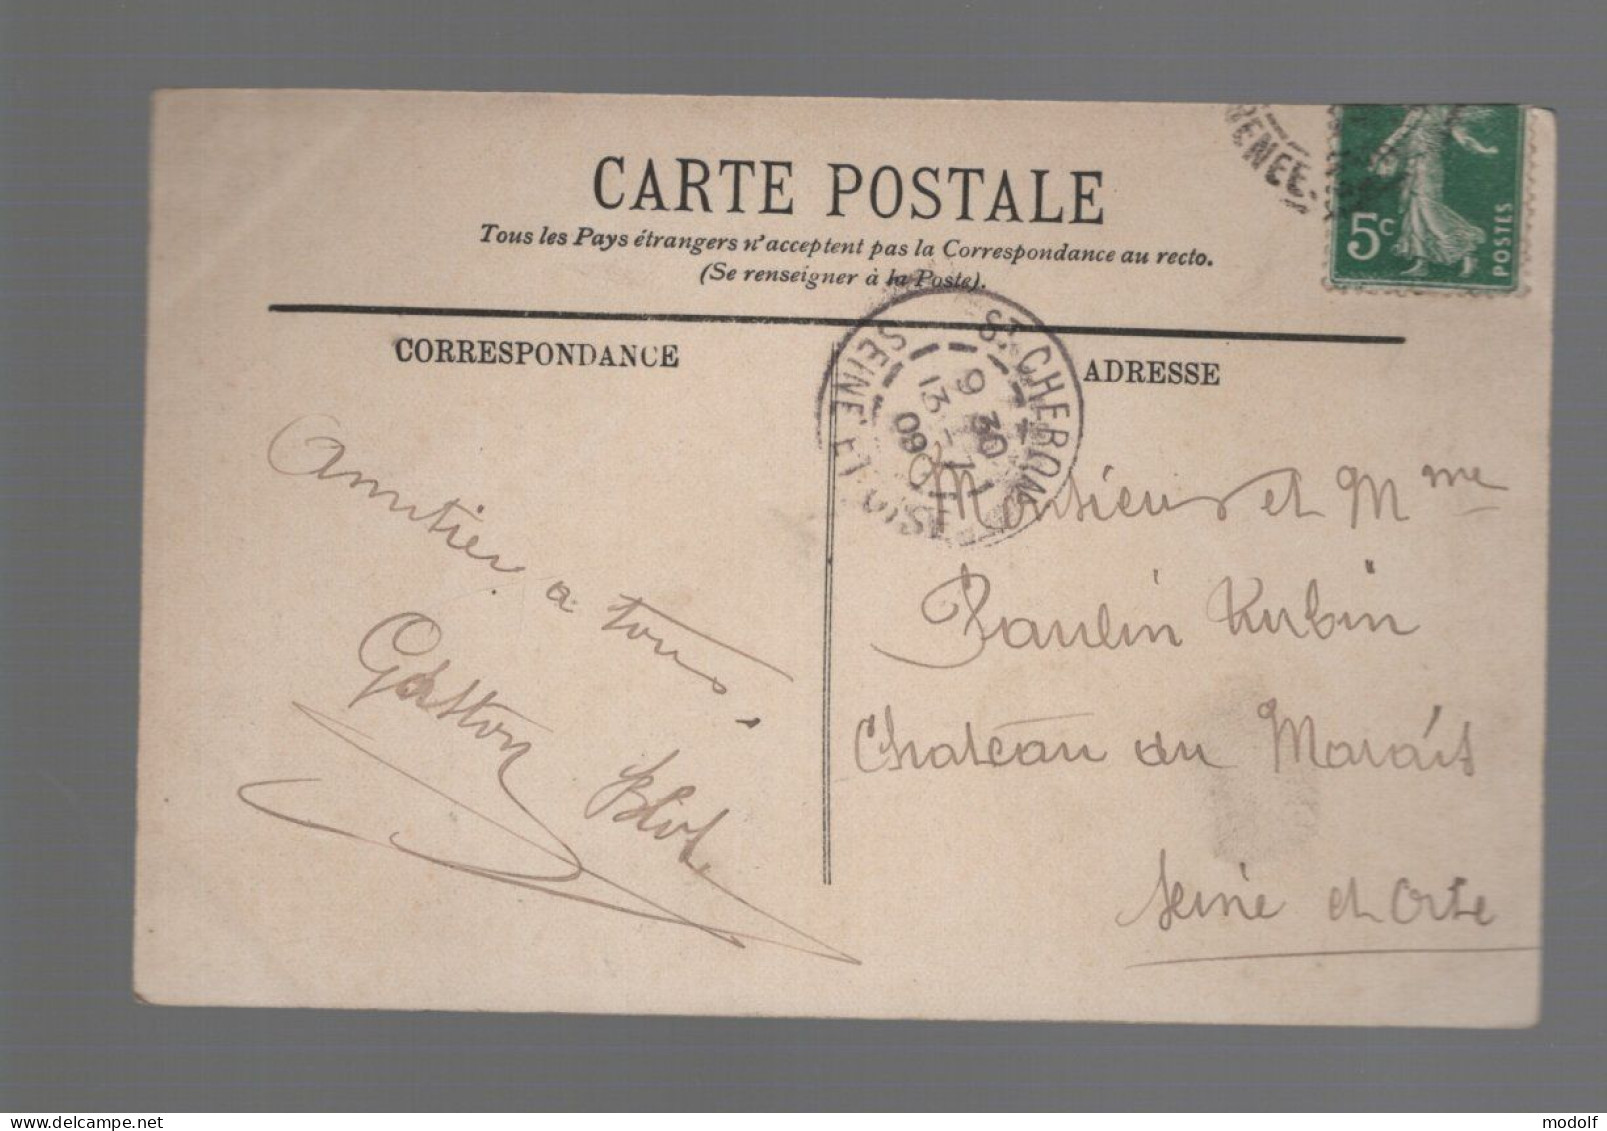 CARTE POSTALE
Tous les Pays étrangers n'acceptent pas la Correspondance au recto.
(Se renseigner à la Poste).
CORRESPONDANCE
ADRESSE
5c
POSTES
ST CHERON
9 30
13 - 7
09
SEINE ET OISE
Amitiés a tous.
Gaston Blot
Monsieur et Mme
Paulin Rubin
Chateau du Marais
Seine et Oise
modolf